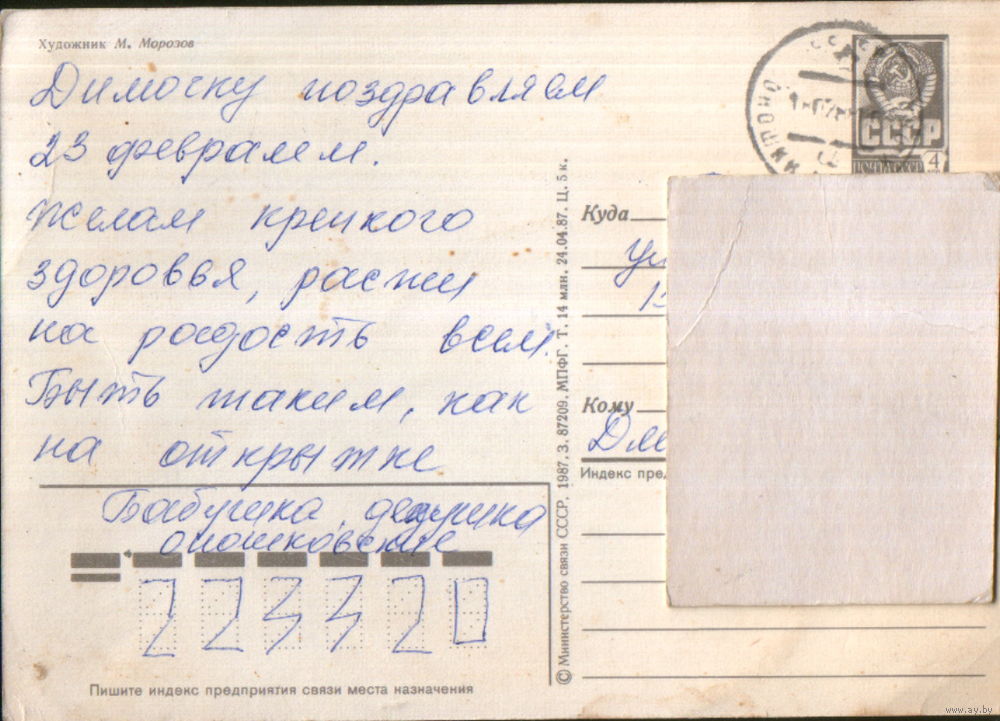 Художник М. Морозов
Димочку поздравляем
23 февралем.
желам крепкого
здоровья, расти
на радость всем.
Быть таким, как
на открытке
Бабушка, дедушка
223320
Пишите индекс предприятия связи места назначения
© Министерство связи СССР. 1987. З. 87209. МПФГ. Т. 14 млн. 24.04.87. Ц. 5 к.
СССР
4
Куда
Кому
Индекс
www.ay.by